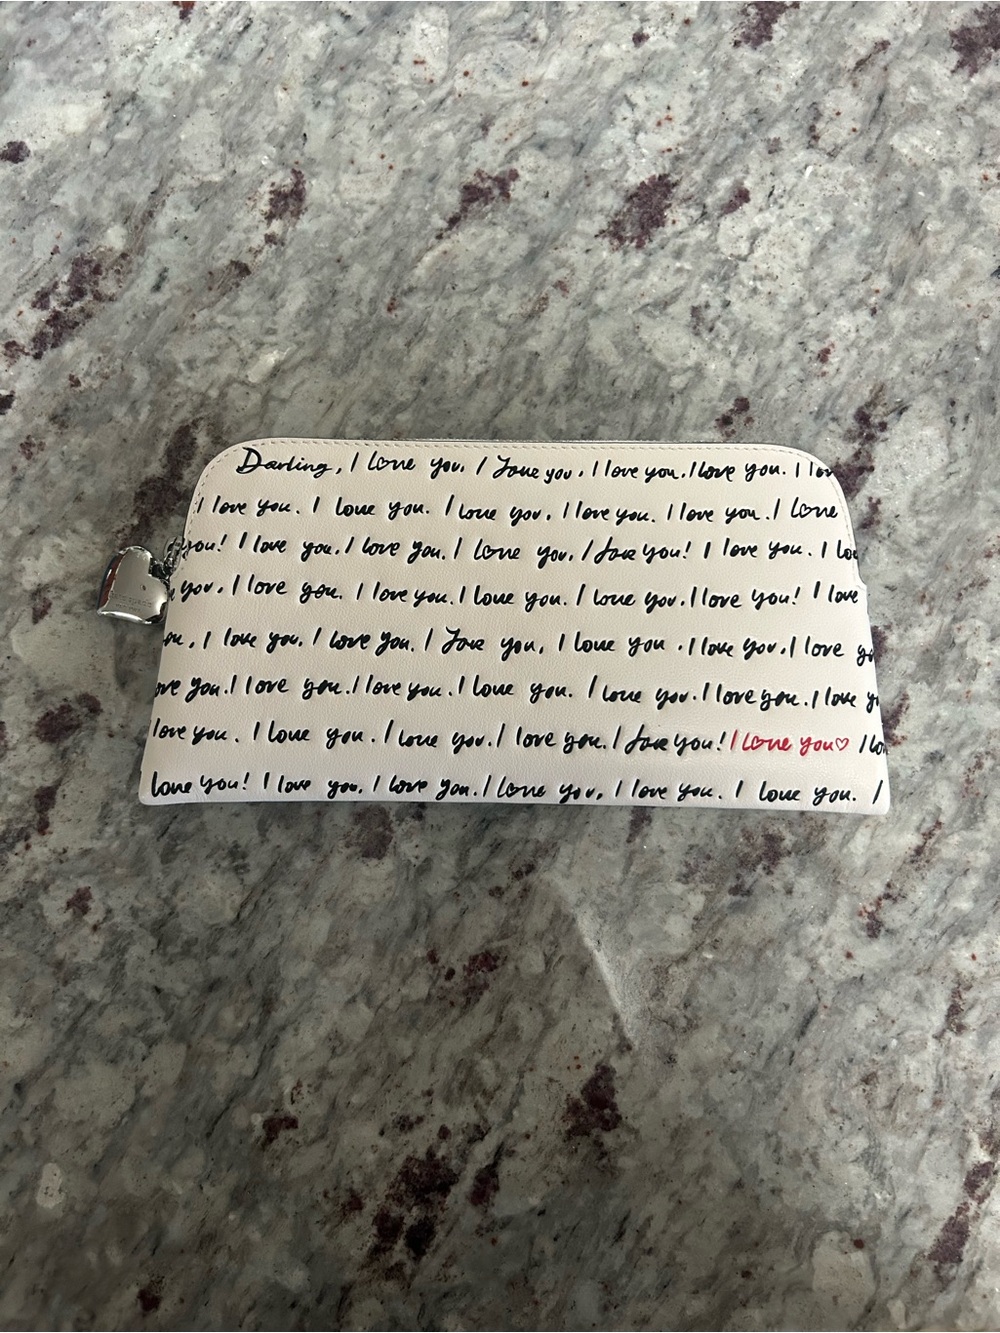 Darling, I love you. I love you, I love you. I love you. I lov
I love you. I love you. I love you, I love you. I love you. I love
you! I love you, I love you. I love you, I love you! I love you. I lo
you, I love you. I love you. I love you. I love you. I love you! I love
ou, I love you, I love you. I love you, I love you. I love you, I love yo
ove you. I love you. I love you. I love you. I love you. I love you. I love y
love you. I love you. I love you. I love you. I love you! I love you♡ I lov
love you! I love you, I love you. I love you, I love you. I love you. I